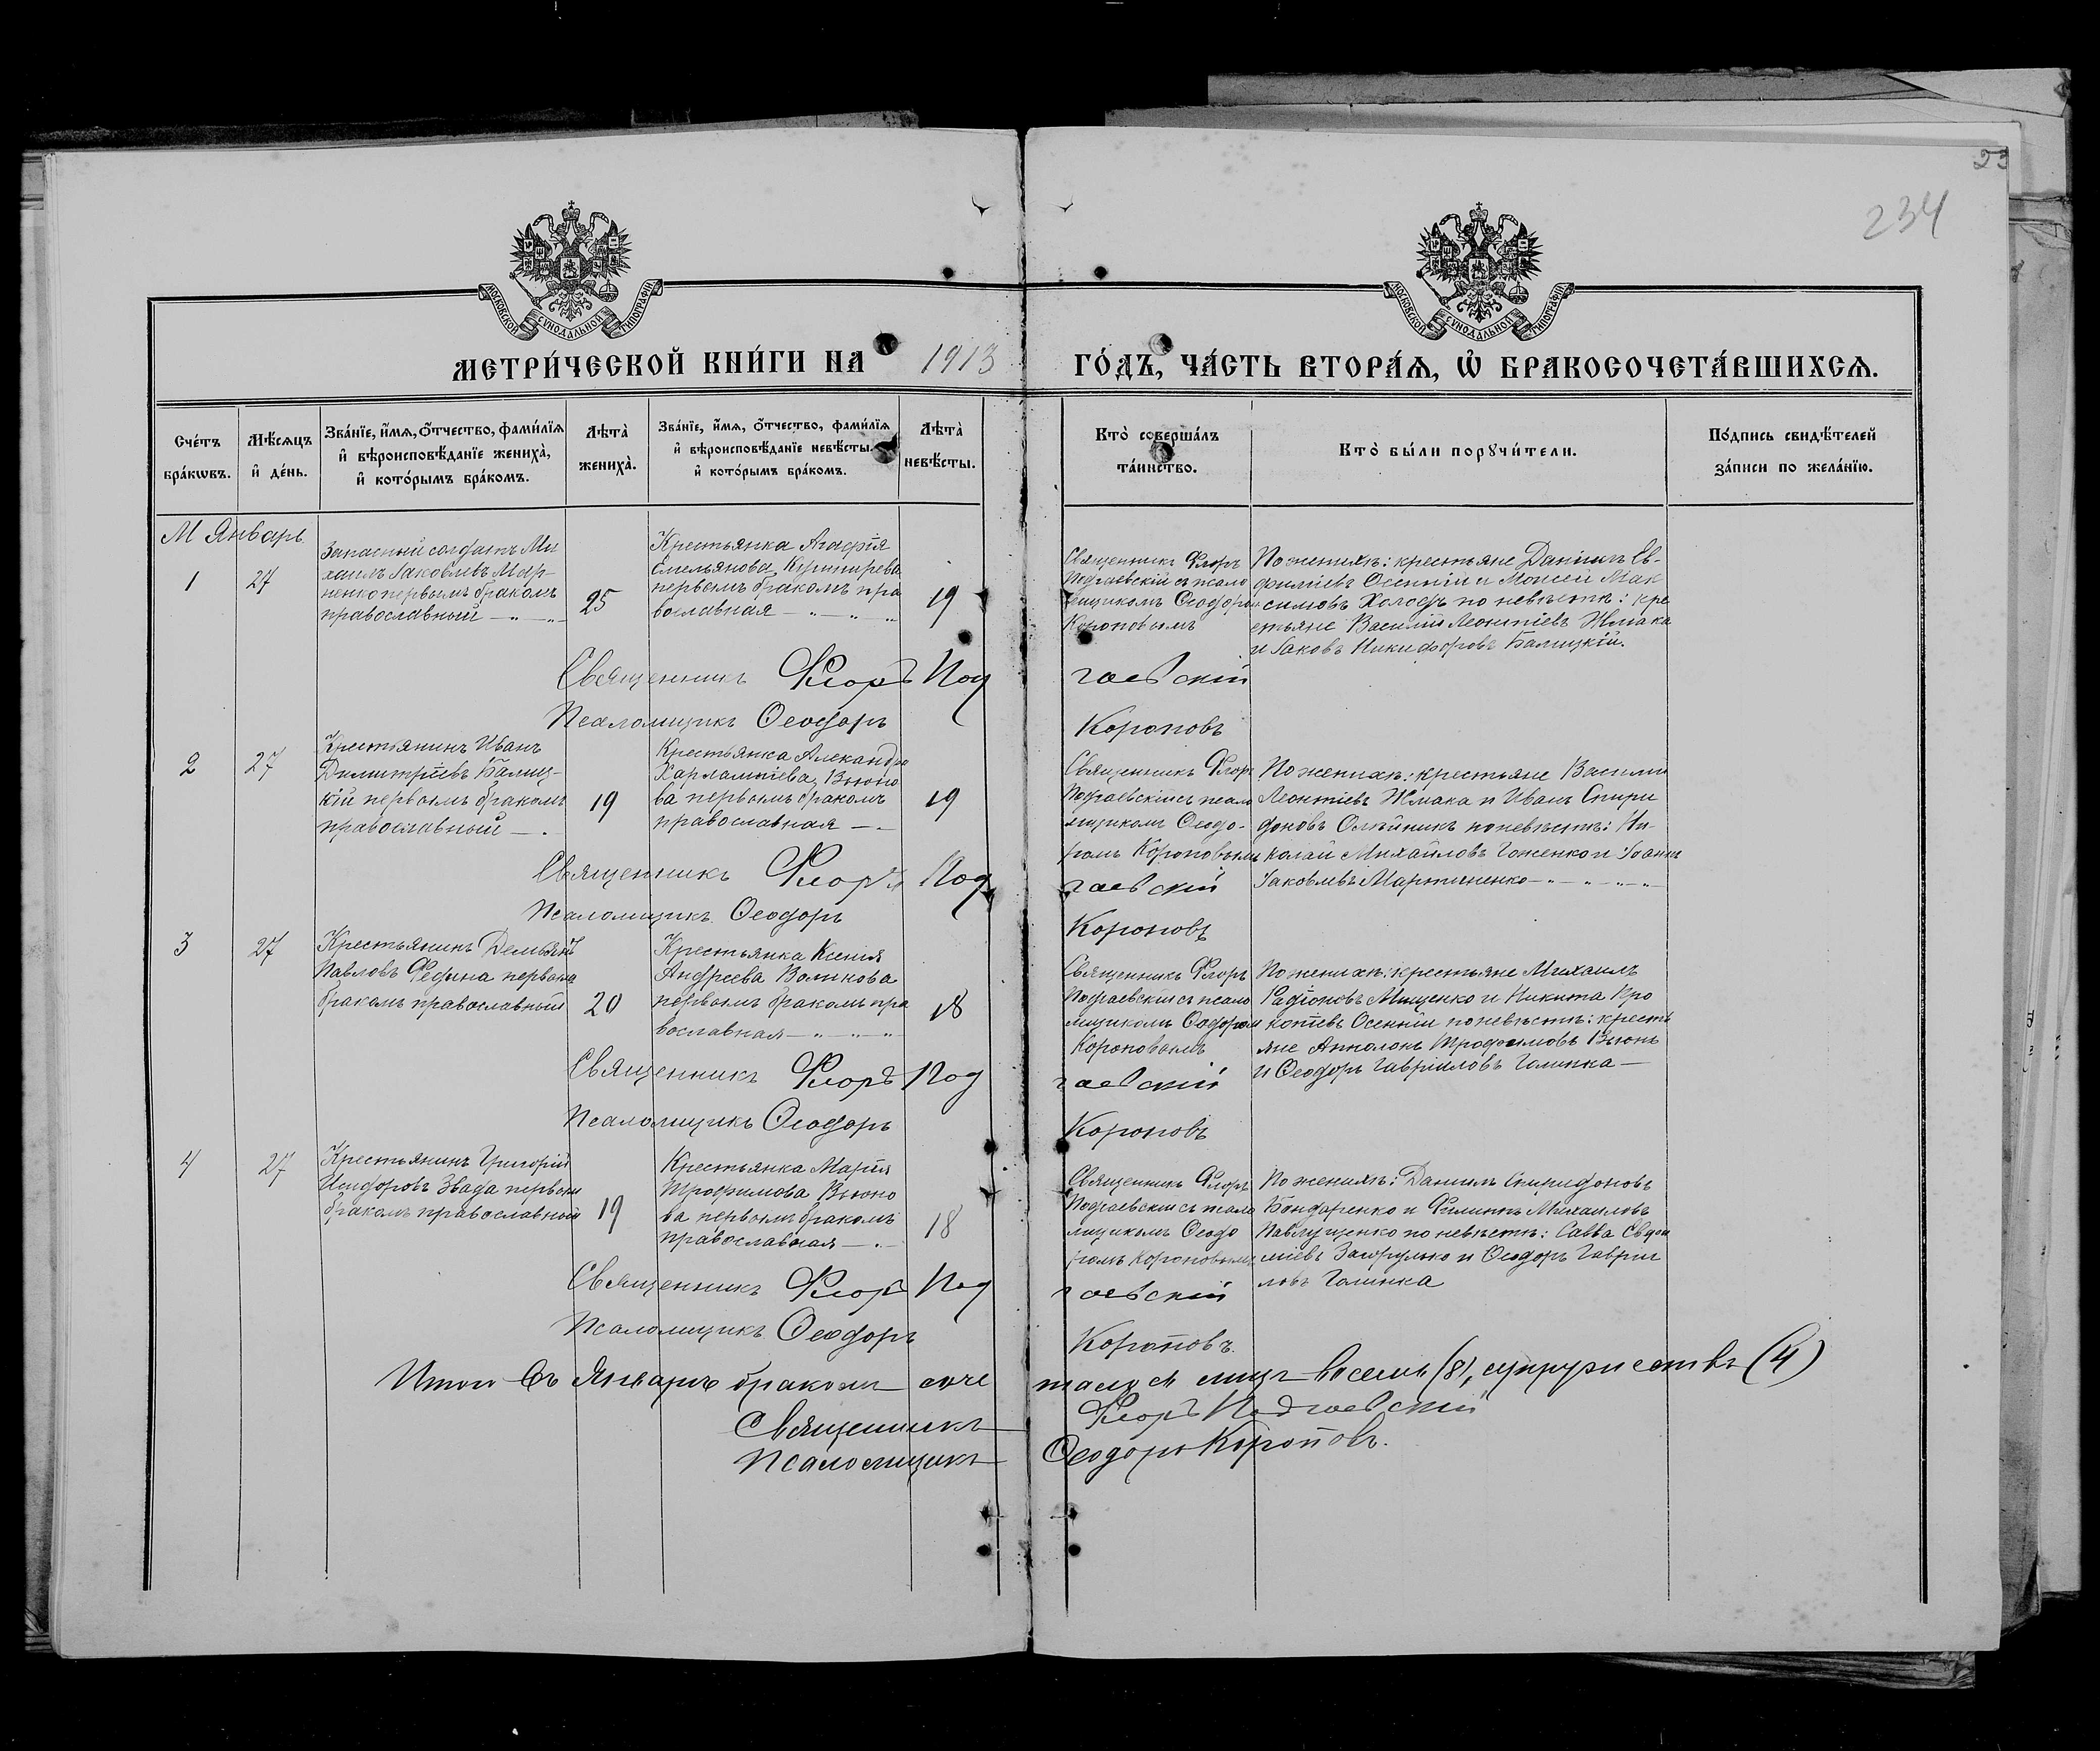 23
234
МОСКОВСКОЙ СѴНОДАЛЬНОЙ ТИПОГРАФІИ
МОСКОВСКОЙ СѴНОДАЛЬНОЙ ТИПОГРАФІИ
МЕТРИ́ЧЕСКОЙ КНИ́ГИ НА 1913 ГО́ДЪ, ЧА́СТЬ ВТОРА́Ѧ, Ѡ҆ БРАКОСОЧЕТА́ВШИХСѦ.
Сче́тъ
бра́кѡвъ.
Мѣ́сѧцъ
и҆ де́нь.
Зва́нїе, и҆́мѧ, ѻ҆́тчество, фами́лїѧ
и҆ вѣроисповѣ́данїе жениха̀,
и҆ кото́рымъ бра́комъ.
Лѣта̀
жениха̀.
Зва́нїе, и҆́мѧ, ѻ҆́тчество, фами́лїѧ
и҆ вѣроисповѣ́данїе невѣ́сты,
и҆ кото́рымъ бра́комъ.
Лѣта̀
невѣ́сты.
Кто̀ соверша́лъ
та́инство.
Кто̀ бы́ли порꙋчи́тели.
По́дпись свидѣ́телей
за́писи по жела́нїю.
М Январь
1
27
Запасный солдатъ Ми
хаилъ Іаковлевъ Мар-
ненко первымъ бракомъ
православный — „ — „
25
Крестьянка Агафія
Емельянова
первымъ бракомъ пра
вославная — „ — „ „
19
Священникъ Флоръ
Подгаевскій съ псало
мщикомъ Ѳеодоромъ
Короповымъ
По женихѣ: крестьяне Даніилъ Ев-
фиміевъ Осенній и Моисей Мак
симовъ Холодъ по невѣстѣ: кре
стьяне Василій Леонтіевъ Жмака
и Іаковъ Никифоровъ Балицкій.
Священникъ Флоръ Подгаевскій
Псаломщикъ Ѳеодоръ Короповъ
2
27
Крестьянинъ Иванъ
Димитріевъ Балиц-
кій первымъ бракомъ
православный — .
19
Крестьянка Александра
Харлампіева Вьюно
ва первымъ бракомъ
православная — .
19
Священникъ Флоръ
Подгаевскій съ псало
мщикомъ Ѳеодо-
ромъ Короповымъ
По женихѣ: крестьяне Василій
Леонтіевъ Жмака и Иванъ Спири
доновъ Олѣйникъ по невѣстѣ: Ни-
колай Михайловъ Гоженко и Іоаннъ
Іаковлевъ Мартыненко — „ — „ — „ —
Священникъ Флоръ Подгаевскій
Псаломщикъ Ѳеодоръ Короповъ
3
27
Крестьянинъ Демьянъ
Павловъ Федина первымъ
бракомъ православный
20
Крестьянка Ксенія
Андреева Воликова
первымъ бракомъ пра
вославная — „ — „ — „
18
Священникъ Флоръ
Подгаевскій съ псало
мщикомъ Ѳеодоромъ
Короповымъ
По женихѣ: крестьяне Михаилъ
Радіоновъ Мищенко и Никита Про
копіевъ Осенній по невѣстѣ: кресть
яне Трофимовъ Вьюнъ
и Ѳеодоръ Гавріиловъ Галинка —
Священникъ Флоръ Подгаевскій
Псаломщикъ Ѳеодоръ Короповъ
4
27
Крестьянинъ Григорій
Исидоровъ Звада первымъ
бракомъ православный
19
Крестьянка Марія
Трофимова Вьюно
ва первымъ бракомъ
православная — . —
18
Священникъ Флоръ
Подгаевскій съ псало
мщикомъ Ѳеодо
ромъ Короповымъ
По женихѣ: Даніилъ Спиридоновъ
Бондаренко и Филиппъ Михаиловъ
Павлущенко по невѣстѣ: Савва Евдоки
міевъ и Ѳеодоръ Гавріи
ловъ Галинка
Священникъ Флоръ Подгаевскій
Псаломщикъ Ѳеодоръ Короповъ.
Итого въ Январѣ бракомъ соче талося лицъ восемь (8), супружествъ (4)
Священникъ Флоръ Подгаевскій
Псаломщикъ Ѳеодоръ Короповъ.